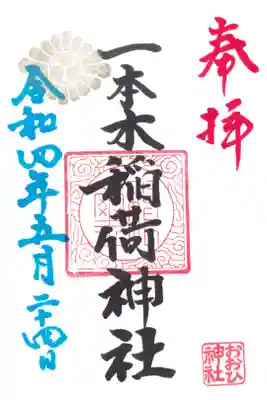 奉拝
一本木稲荷神社
令和四年五月二十四日
おおひ
神社